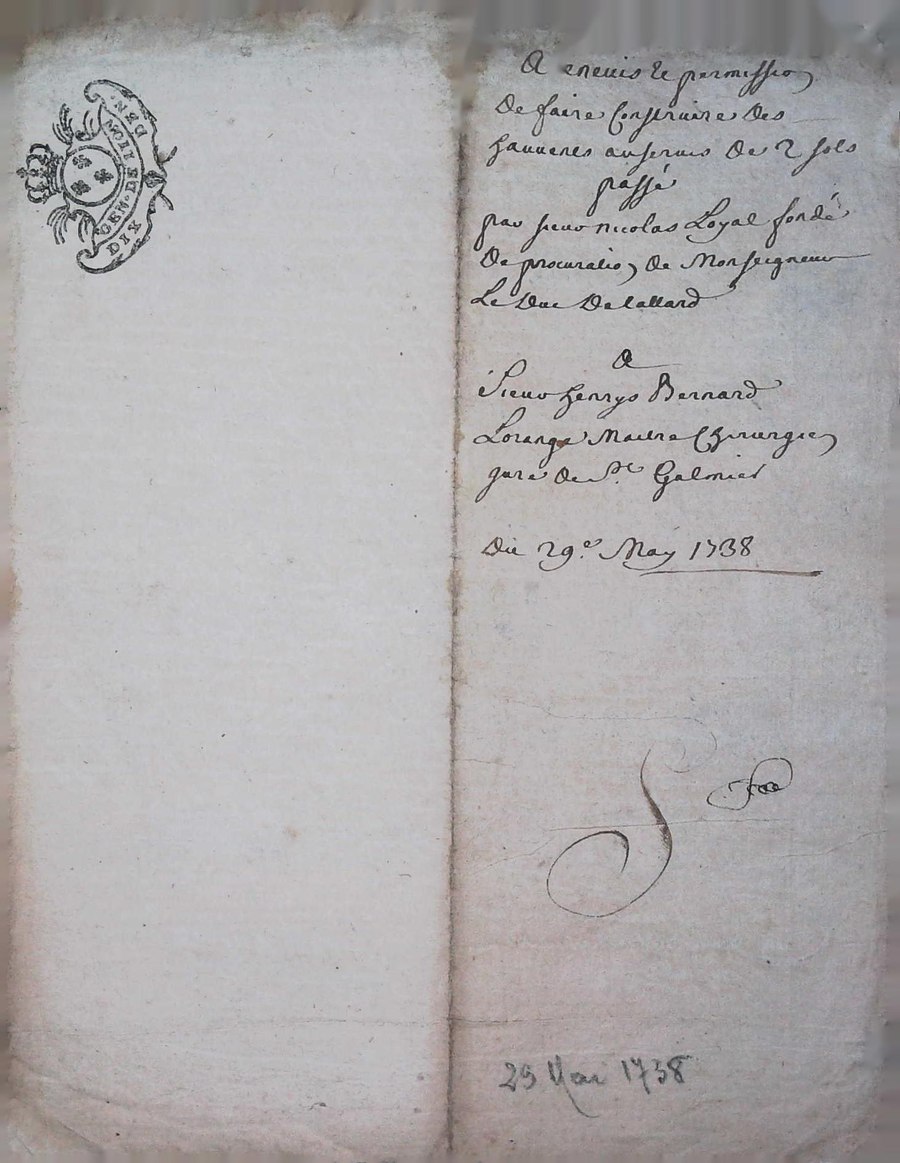 GEN. DE LION
DIX DEN.
A enevis et permission
De faire Construire des
auservis De 2 sols
passé
par sieur nicolas Loyal fondé
De procuration de Monseigneur
Le Duc Detallard
A
Sieur henrys Bernard
Lorange Maitre Chirurgien
juré de St. Galmier
Du 29e. May 1738
29 Mai 1738